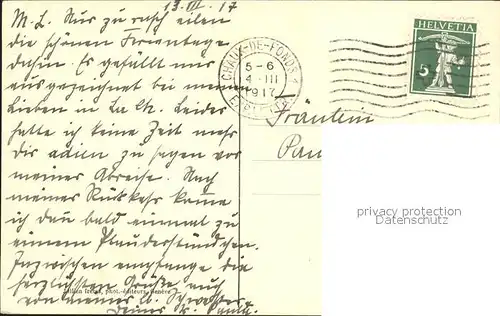 13.III.17
M. L. Nur zu rasch eilen
die schönen Ferientage
dahin. Es gefällt mir
ausgezeichnet bei meinen
Lieben in La Ch. Leider
hatte ich keine Zeit mehr
dir adieu zu sagen vor
meiner Abreise. Nach
meiner Rückkehr komme
ich dann bald einmal zu
einem Plauderstündchen.
Inzwischen empfange die
herzlichsten Grüsse auch
von meiner lb. Schwester
Deine
phot.-éditeurs, Genève
CHAUX-DE-FONDS
5-6
14 III
1917
HELVETIA
5
Fräulein
privacy protection
Datenschutz